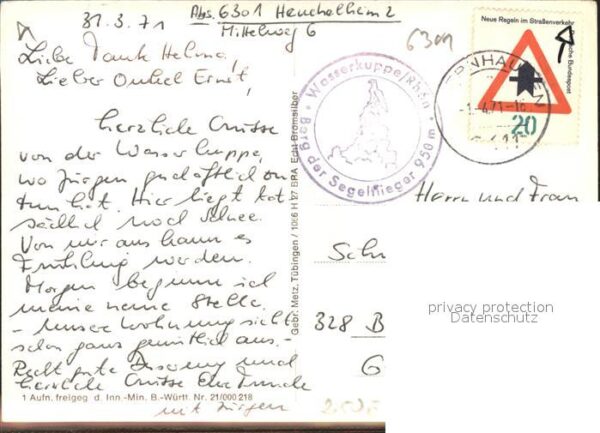 31.3.71
Abs. 6301 Heuchelheim 2
Mittelweg 6
6301
Liebe Tante Helma,
Lieber Onkel Ernst,
herzliche Grüsse
von der Wasserkuppe,
wo Jürgen geschäftlich zu
tun hat. Hier liegt tat
sächlich noch Schnee.
Von mir aus kann es
Frühling werden.
Morgen beginne ich
meine neue Stelle.
- Unsere Wohnung sieht
schon ganz gemütlich aus. -
Recht gute und
herzliche Grüsse Eure
mit Jürgen
1 Aufn. freigeg. d. Inn.-Min. B.-Württ. Nr. 21/000 218
Gebr. Metz, Tübingen / 1086 H 27 BRA Echt Bromsilber
Wasserkuppe/Rhön
Berg der Segelflieger 950 m
Neue Regeln im Straßenverkehr
Deutsche Bundespost
20
-1.4.71-16
Herrn und Frau
Sch
328 B
G
privacy protection
Datenschutz